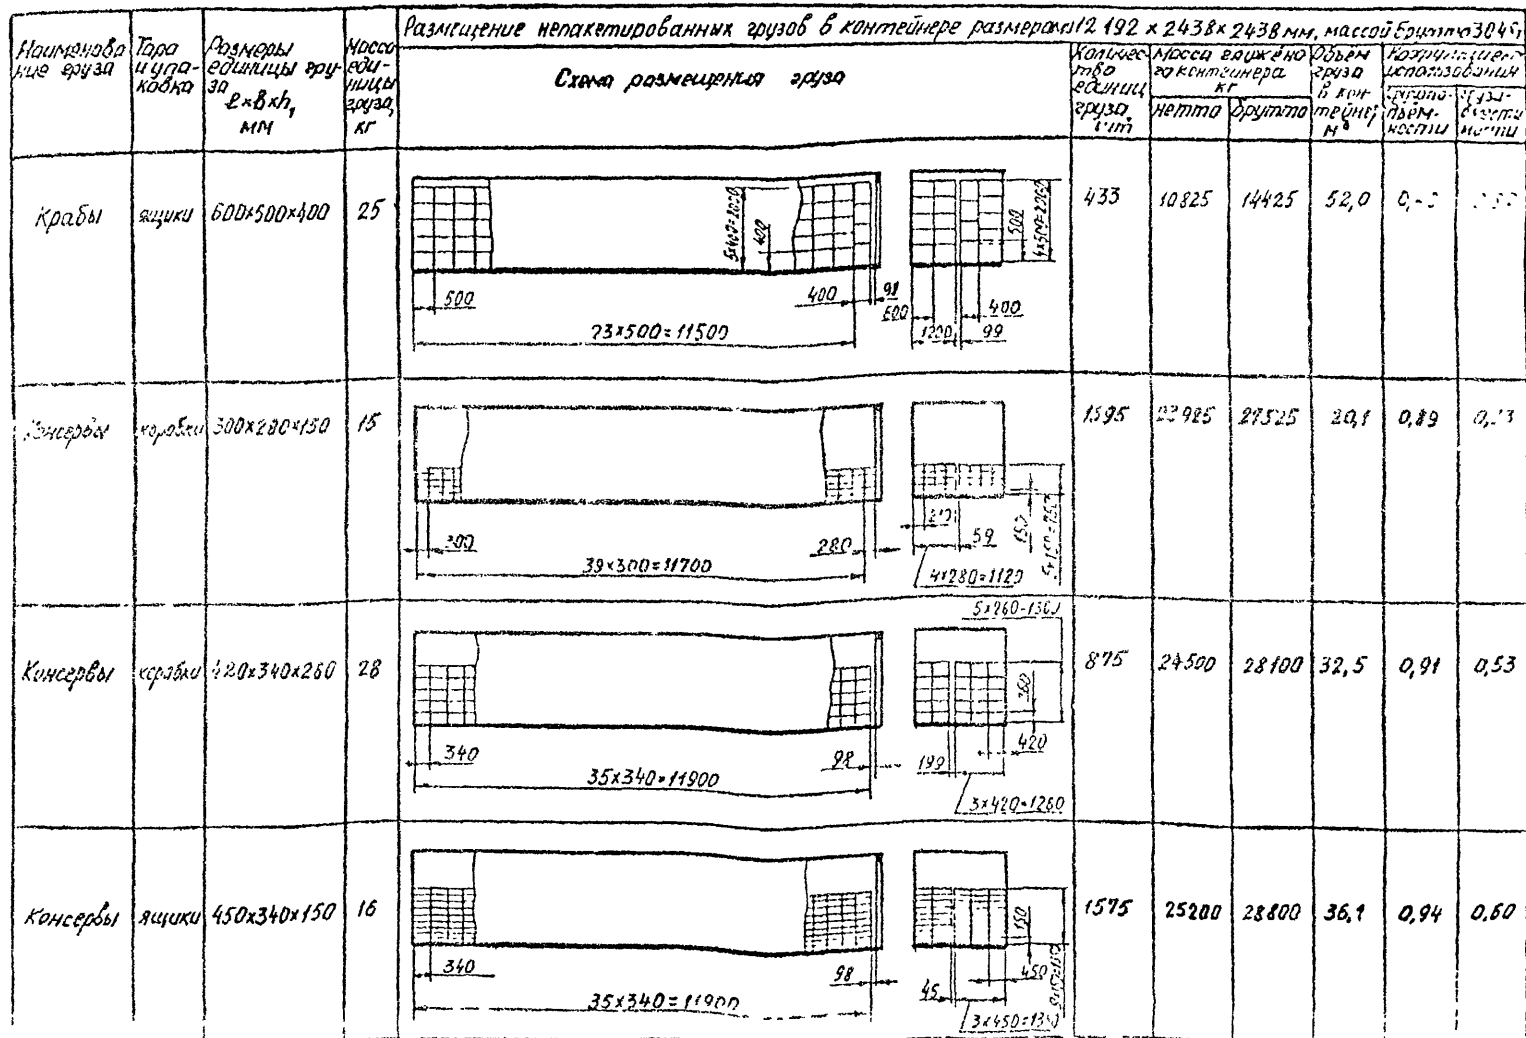 Размещение непакетированных грузов в контейнере размерами 12 192 х 2438х 2438 мм, массой брутто 30 45т
Наименова
ние груза
Тара
и упа-
ковка
Размеры
единицы гру-
за
l×b×h,
мм
Масса
еди-
ницы
груза,
кг
Схема размещения груза
Количес-
тво
единиц
груза,
шт
Масса гружено
го контейнера
кг
нетто
брутто
Объём
груза
в кон
тейнере,
м³
Коэффициент
использования
грузопо-
дъём-
ности
Крабы
ящики
600×500×400
25
5х400=2000
400
500
4х500=2000
500
400
98
23×500=11500
600
400
1200
99
433
10825
14425
52,0
Консервы
коробки
300×280×150
15
300
280
39×300=11700
59
150
4×280=1120
1595
23925
27525
20,1
0,89
Консервы
коробки
420х340х260
28
5×260=1300
260
340
98
35×340=11900
199
420
3×420=1260
875
24500
28100
32,5
0,91
0,53
Консервы
ящики
450х340х150
16
150
340
98
35×340=11900
45
450
3×450=1350
1575
25200
28800
36,1
0,94
0,60